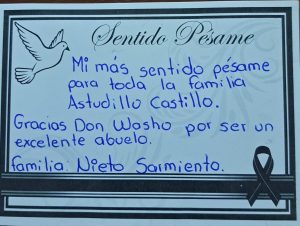 Sentido Pésame
Mi más sentido pésame
para toda la familia
Astudillo Castillo.
Gracias Don Washo por ser un
excelente abuelo.
Familia: Nieto Sarmiento.